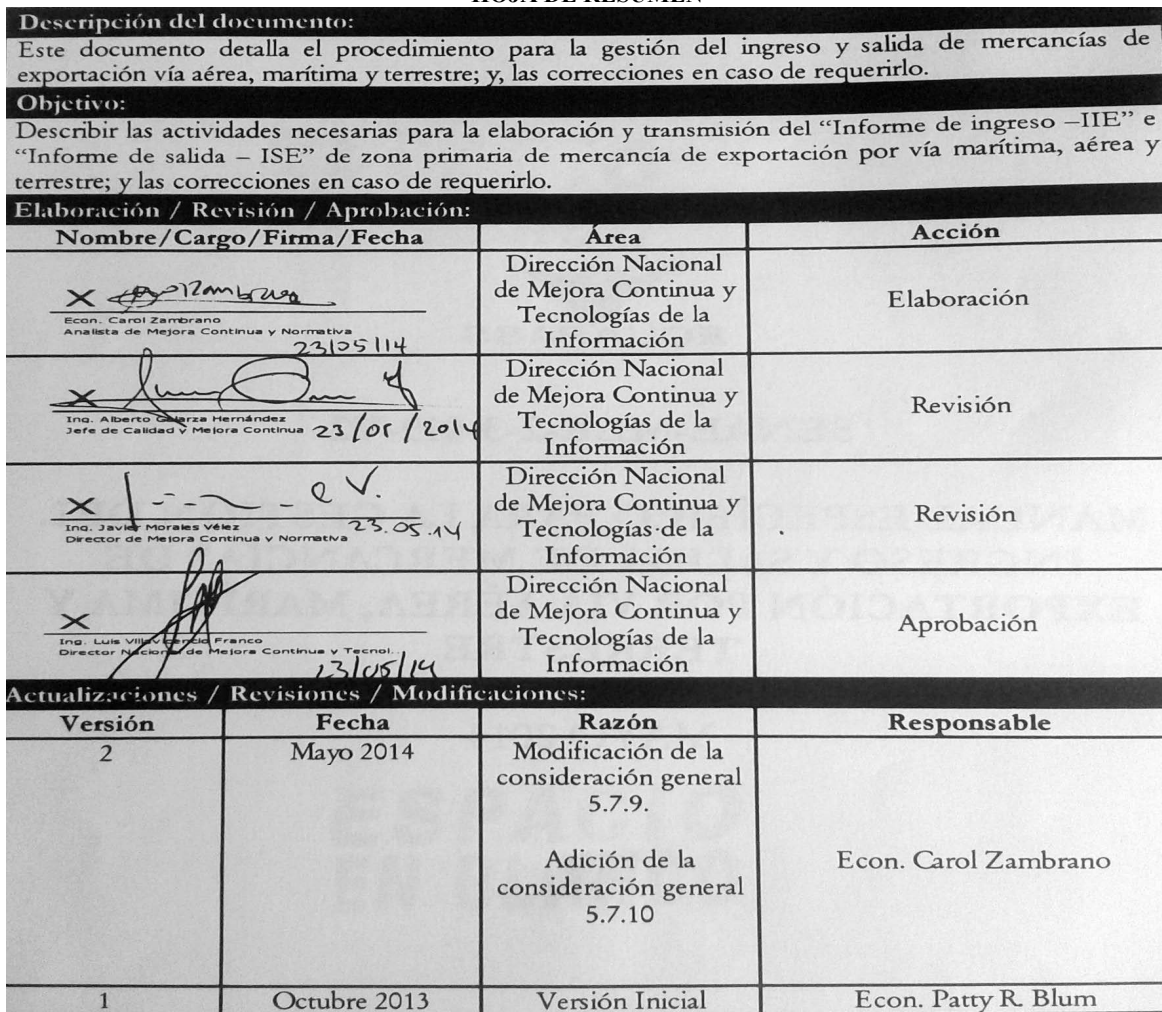 HOJA DE RESUMEN
Descripción del documento:
Este documento detalla el procedimiento para la gestión del ingreso y salida de mercancías de
exportación vía aérea, marítima y terrestre; y, las correcciones en caso de requerirlo.
Objetivo:
Describir las actividades necesarias para la elaboración y transmisión del “Informe de ingreso –IIE” e
“Informe de salida – ISE” de zona primaria de mercancía de exportación por vía marítima, aérea y
terrestre; y las correcciones en caso de requerirlo.
Elaboración / Revisión / Aprobación:
Nombre/Cargo/Firma/Fecha
Área
Acción
X
Econ. Carol Zambrano
Analista de Mejora Continua y Normativa
23/05/14
Dirección Nacional
de Mejora Continua y
Tecnologías de la
Información
Elaboración
X
Ing. Alberto Galarza Hernández
Jefe de Calidad y Mejora Continua 23/05/2014
Dirección Nacional
de Mejora Continua y
Tecnologías de la
Información
Revisión
X
Ing. Javier Morales Vélez
Director de Mejora Continua y Normativa
23.05.14
Dirección Nacional
de Mejora Continua y
Tecnologías de la
Información
Revisión
X
Ing. Luis Villavicencio Franco
Director Nacional de Mejora Continua y Tecnol...
23/05/14
Dirección Nacional
de Mejora Continua y
Tecnologías de la
Información
Aprobación
Actualizaciones / Revisiones / Modificaciones:
Versión
Fecha
Razón
Responsable
2
Mayo 2014
Modificación de la
consideración general
5.7.9.
Adición de la
consideración general
5.7.10
Econ. Carol Zambrano
1
Octubre 2013
Versión Inicial
Econ. Patty R. Blum